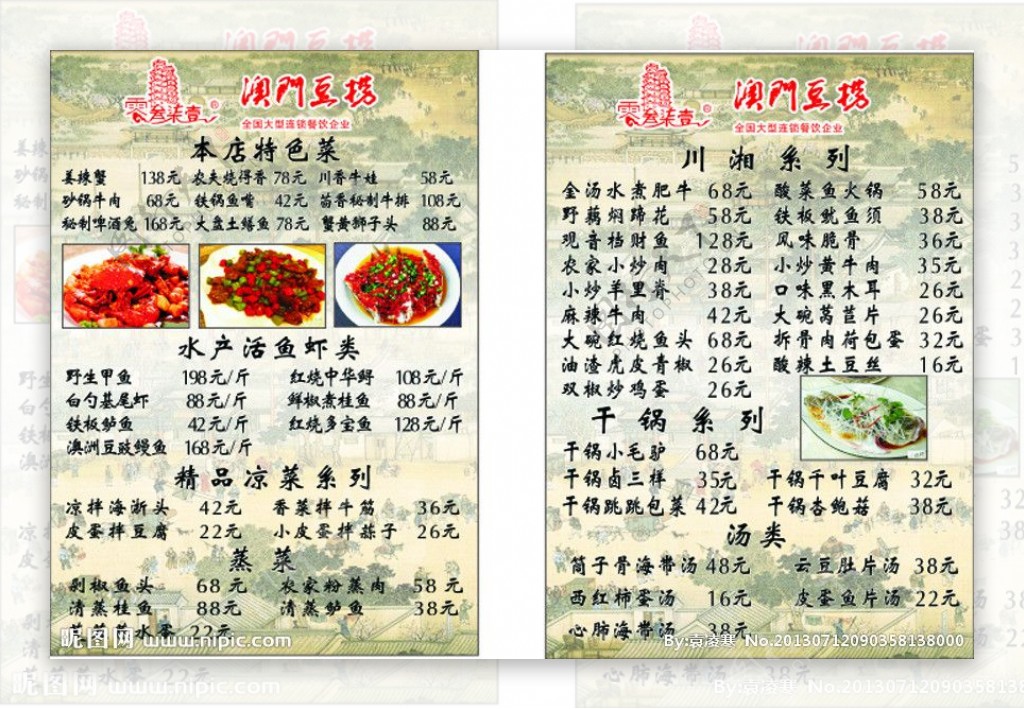 零叁柒壹®
澳門豆捞
全国大型连锁餐饮企业
本店特色菜
姜辣蟹 138元 农夫烧得香 78元 川香牛蛙 58元
砂锅牛肉 68元 铁锅鱼嘴 42元 茴香秘制牛排 108元
秘制啤酒兔 168元 大盘土鳝鱼 78元 蟹黄狮子头 88元
水产活鱼虾类
野生甲鱼 198元/斤 红烧中华鲟 108元/斤
白勺基尾虾 88元/斤 鲜椒煮桂鱼 88元/斤
铁板鲈鱼 42元/斤 红烧多宝鱼 128元/斤
澳洲豆豉鳗鱼 168元/斤
精品凉菜系列
凉拌海浙头 42元 香菜拌牛筋 36元
皮蛋拌豆腐 22元 小皮蛋拌蒜子 26元
蒸菜
剁椒鱼头 68元 农家粉蒸肉 58元
清蒸桂鱼 88元 清蒸鲈鱼 38元
水蛋 22元
昵图网 www.nipic.com
零叁柒壹®
澳門豆捞
全国大型连锁餐饮企业
川湘系列
金汤水煮肥牛 68元 酸菜鱼火锅 58元
野藕焖蹄花 58元 铁板鱿鱼须 38元
观音档财鱼 128元 风味脆骨 36元
农家小炒肉 28元 小炒黄牛肉 35元
小炒羊里脊 38元 口味黑木耳 26元
麻辣牛肉 42元 大碗莴苣片 26元
大碗红烧鱼头 68元 拆骨肉荷包蛋 32元
油渣虎皮青椒 26元 酸辣土豆丝 16元
双椒炒鸡蛋 26元
干锅系列
干锅小毛驴 68元
干锅卤三样 35元 干锅千叶豆腐 32元
干锅跳跳包菜 42元 干锅杏鲍菇 38元
汤类
筒子骨海带汤 48元 云豆肚片汤 38元
西红柿蛋汤 16元 皮蛋鱼片汤 22元
心肺海带汤 38元
By:袁凌寒 No.20130712090358138000